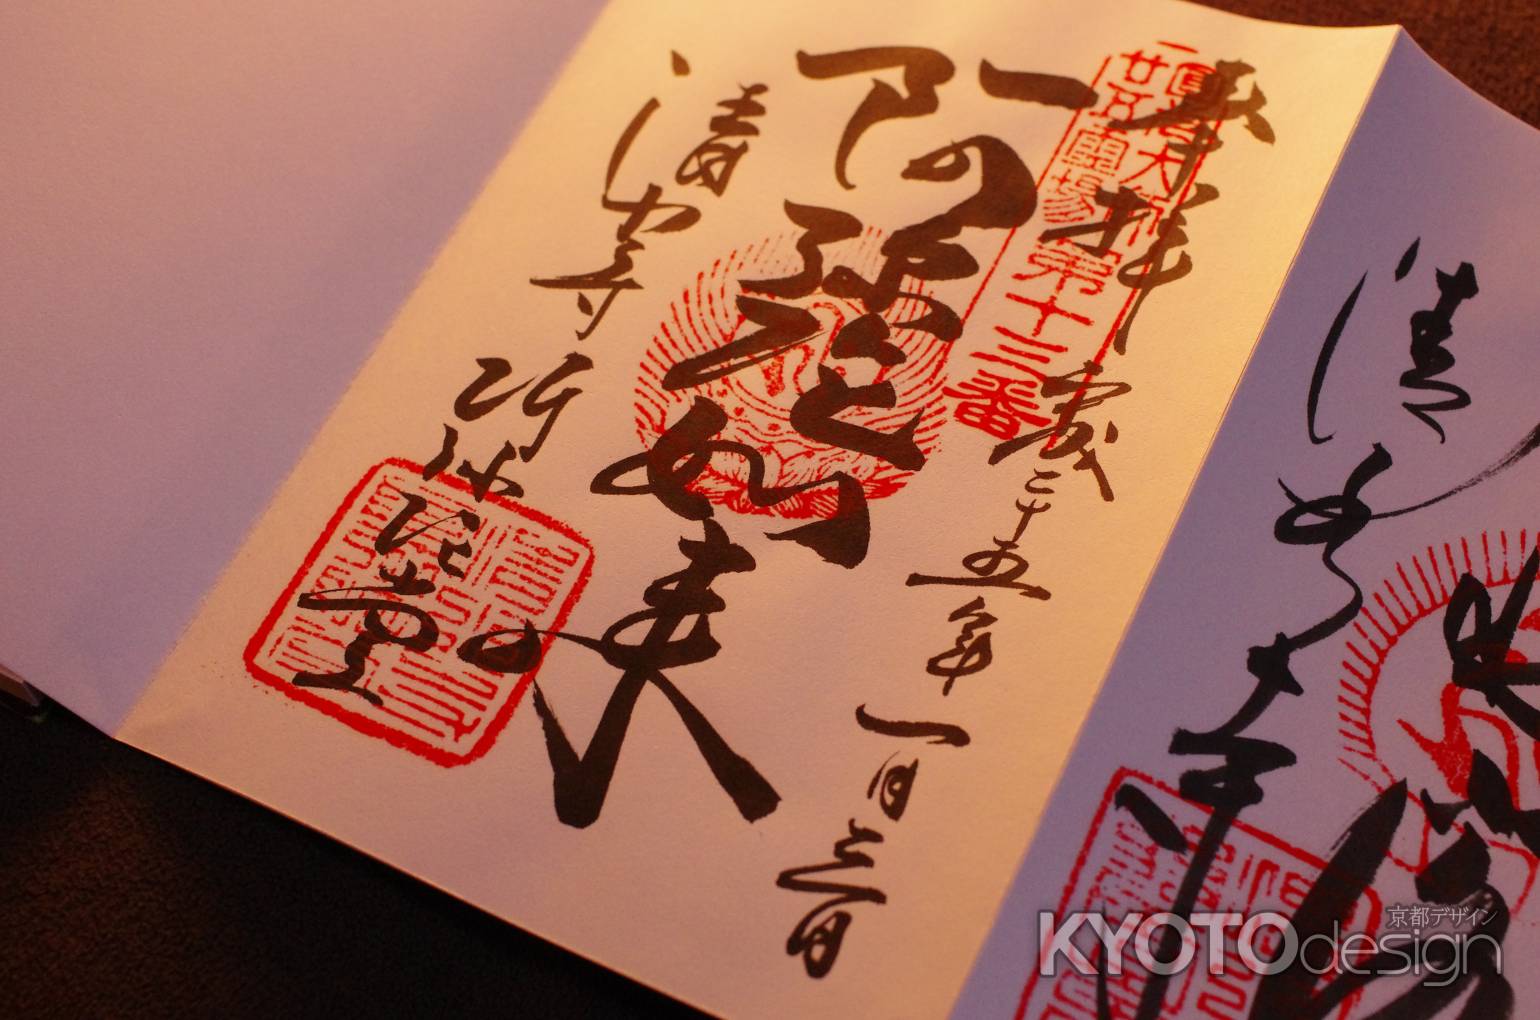 奉拝
平成二十五年一月三日
圓光大師
廿五霊場第十三番
阿弥陀如来
清水寺
阿弥陀堂
清水寺
京都デザイン
KYOTOdesign